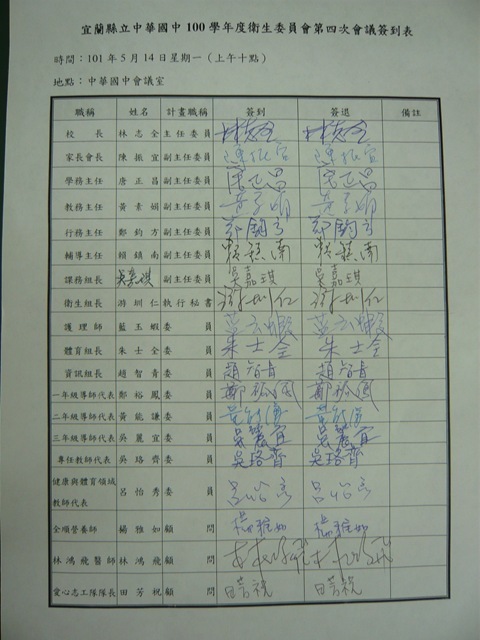 宜蘭縣立中華國中 100 學年度衛生委員會第四次會議簽到表
時間：101 年 5 月 14 日星期一（上午十點）
地點：中華國中會議室
職稱 姓名 計畫職稱 簽到 簽退 備註
校長 林志全 主任委員 林志全 林志全
家長會長 陳振宜 副主任委員 陳振宜 陳振宜
學務主任 唐正昌 副主任委員 唐正昌 唐正昌
教務主任 黃素娟 副主任委員 黃素娟 黃素娟
行務主任 鄭鈞方 副主任委員 鄭鈞方 鄭鈞方
輔導主任 賴鎮南 副主任委員 賴鎮南 賴鎮南
課務組長 吳嘉琪 副主任委員 吳嘉琪 吳嘉琪
衛生組長 游圳仁 執行秘書 游圳仁 游圳仁
護理師 藍玉蝦 委員 藍玉蝦 藍玉蝦
體育組長 朱士全 委員 朱士全 朱士全
資訊組長 趙智青 委員 趙智青 趙智青
一年級導師代表 鄭裕鳳 委員 鄭裕鳳 鄭裕鳳
二年級導師代表 黃能謙 委員 黃能謙 黃能謙
三年級導師代表 吳麗宜 委員 吳麗宜 吳麗宜
專任教師代表 吳珞齊 委員 吳珞齊 吳珞齊
健康與體育領域
教師代表 呂怡秀 委員 呂怡秀 呂怡秀
全順營養師 楊雅如 顧問 楊雅如 楊雅如
林鴻飛醫師 林鴻飛 顧問 林鴻飛 林鴻飛
愛心志工隊隊長 田芳祝 顧問 田芳祝 田芳祝